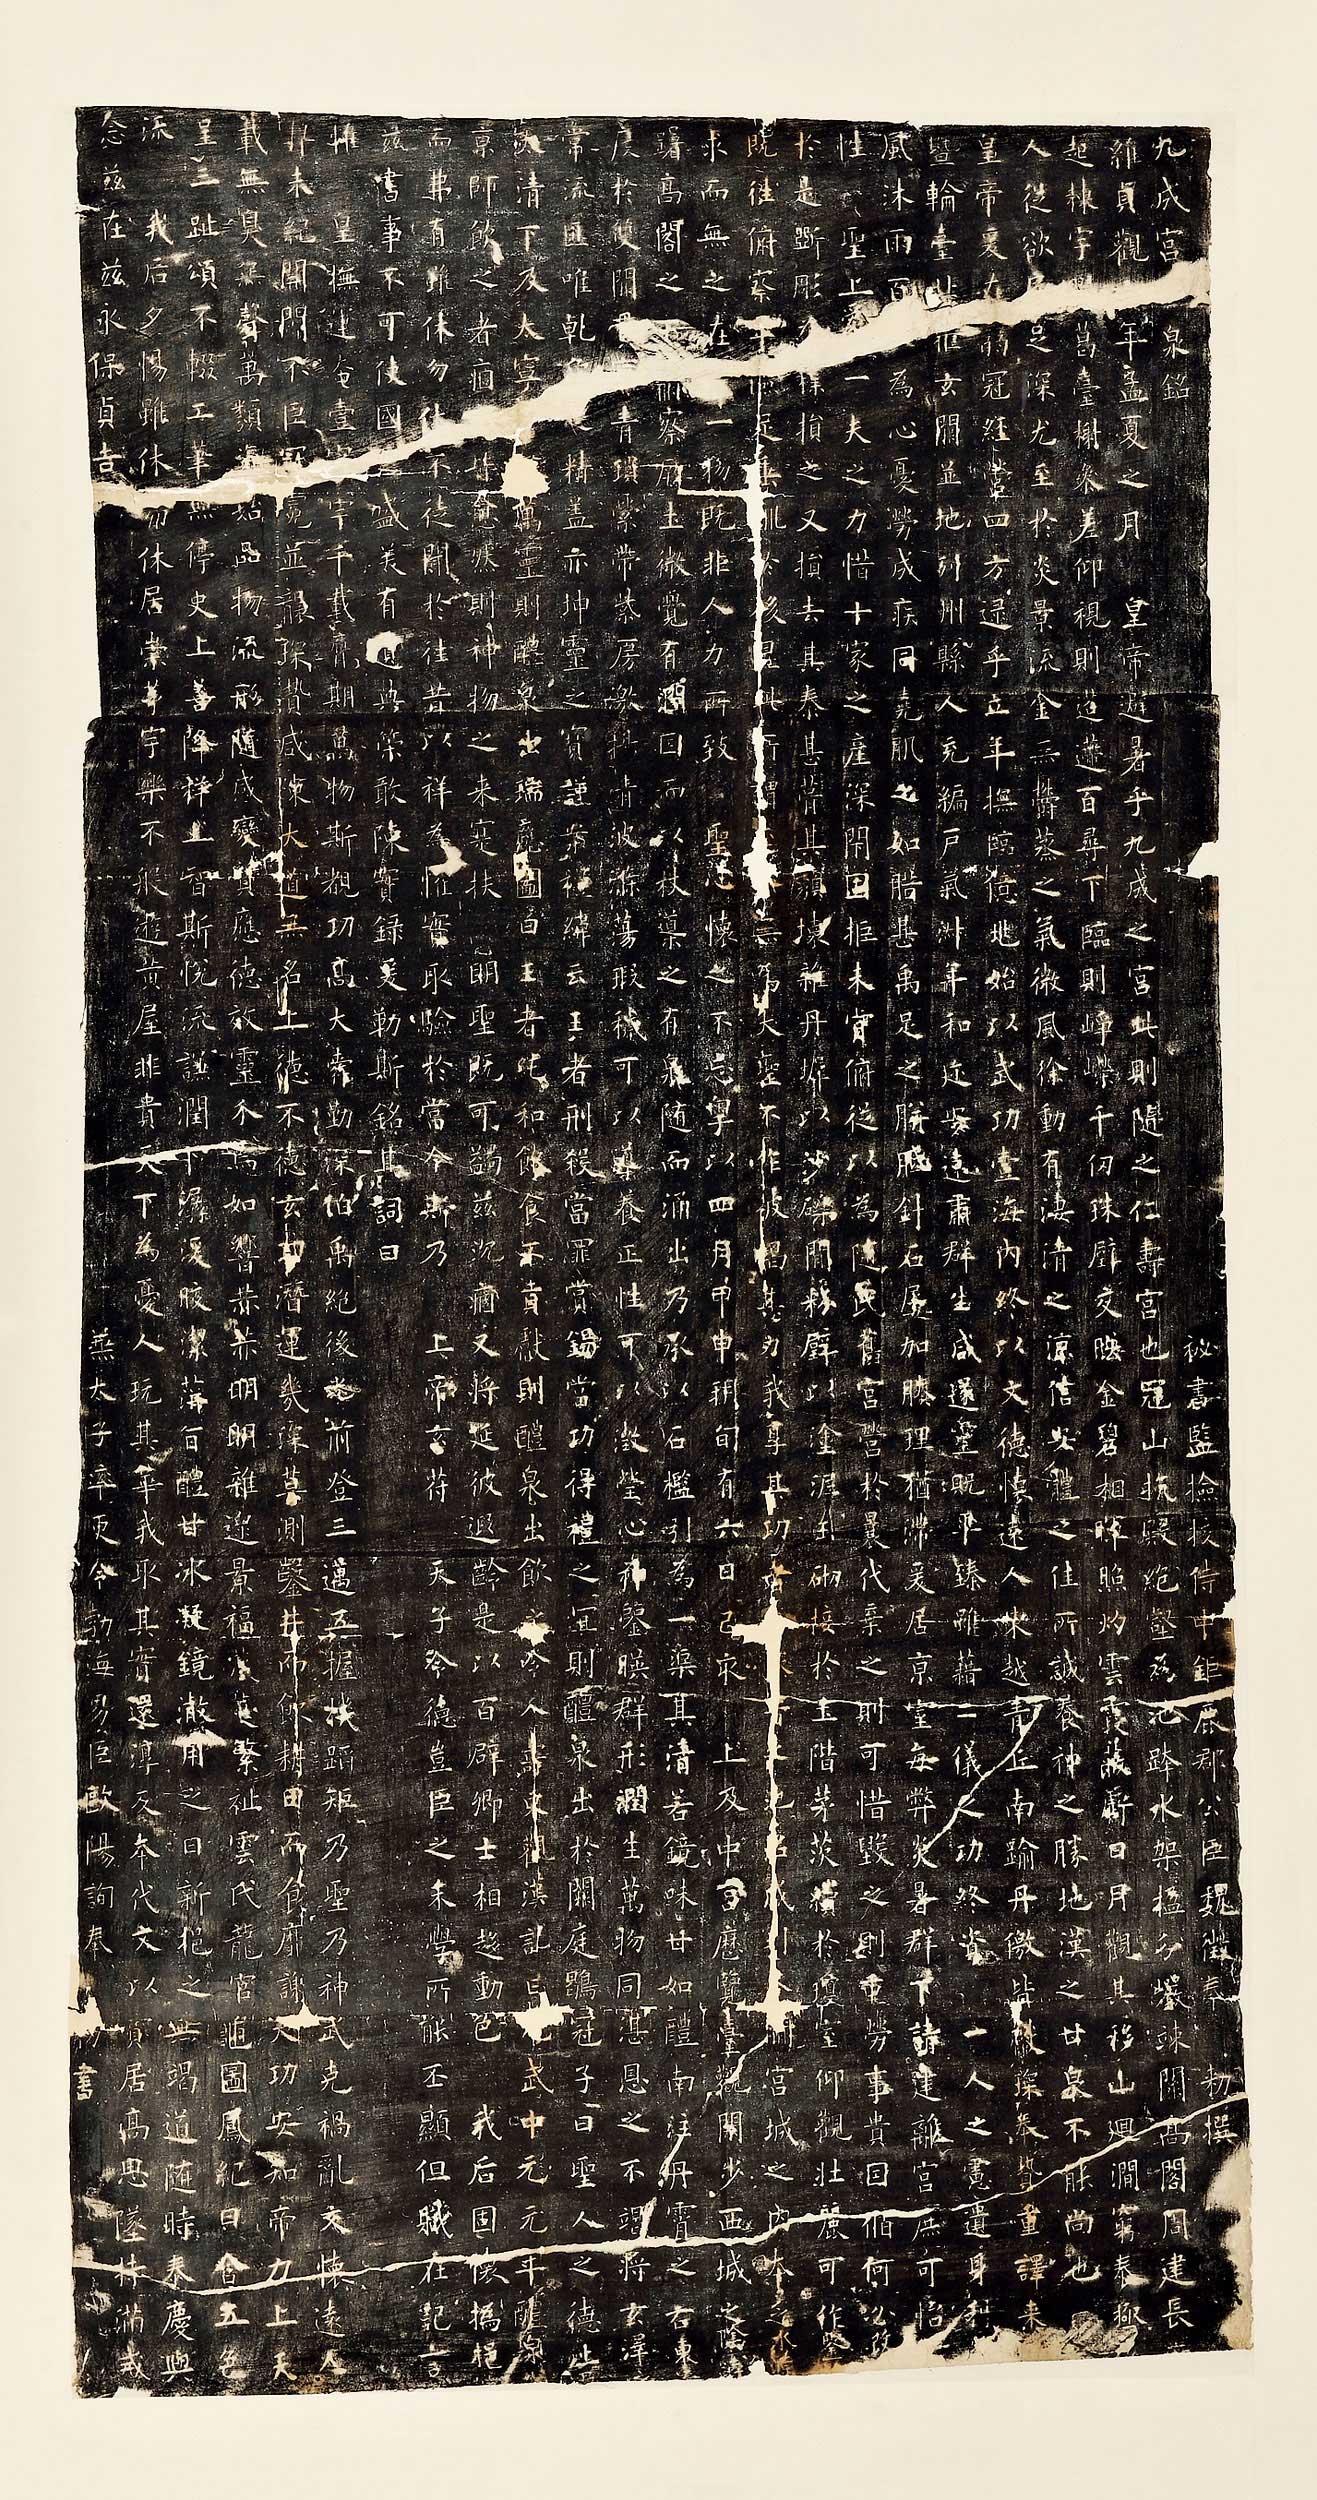 九成宮 泉銘 祕書監撿挍侍中鉅鹿郡公臣魏徵奉 勑撰
維貞觀 年孟夏之月 皇帝避暑乎九成之宮此則隨之仁壽宮也冠山抗殿絕壑為池跨水架楹分巖竦闕高閣周建長
起棟宇 葛臺榭參差仰視則迢遰百尋下臨則崢嶸千仞珠璧交暎金碧相暉照灼雲霞蔽虧日月觀其移山迴澗窮泰極
人從欲 足深尤至於炎景流金無鬱蒸之氣微風徐動有淒清之涼信安體之佳所誠養神之勝地漢之甘泉不能尚也
皇帝爰在弱冠經營四方逮乎立年撫臨億兆始以武功壹海內終以文德懷遠人東越青丘南踰丹徼皆獻琛奉贄重譯來
暨輪臺北拒玄闕並地列州縣人充編戶氣淑年和邇安遠肅群生咸遂靈貺畢臻雖藉二儀之功終資一人之慮遺身利
風沐雨百 為心憂勞成疾同堯肌之如腊甚禹足之胼胝針石屢加腠理猶滯爰居京室每弊炎暑群下請建離宮庶可怡
性 聖上 一夫之力惜十家之產深閉固拒未肯俯從以為隨氏舊宮營於曩代棄之則可惜毀之則重勞事貴因循何必改
於是斲彫 損之又損去其泰甚葺其頹壞雜丹墀以沙礫間粉壁以塗泥玉砌接於土階茅茨續於瓊室仰觀壯麗可作鑒
既往俯察 足垂訓於後昆此所謂 無為大聖不作彼竭其力我享其功 昔之池沼咸引 澗宮城之內本乏水
求而無之在 一物既非人力所致 聖心懷之不忘粵以四月甲申朔旬有六日己亥 上及中宮歷覽臺觀閑步西城之陰
躇高閣之 俯察厥土微覺有潤因而以杖導之有泉隨而涌出乃承以石檻引為一渠其清若鏡味甘如醴南注丹霄之右東
度於雙闕 青瑣縈帶紫房激揚清波滌蕩瑕穢可以導養正性可以澂瑩心神鑒暎群形潤生萬物同湛恩之不竭將玄澤
常流匪唯乾 精蓋亦坤靈之寶謹案禮緯云王者刑殺當罪賞錫當功得禮之宜則醴泉出於闕庭鶡冠子曰聖人之德上
太清下及太寧 萬靈則醴泉出瑞應圖曰王者純和飲食不貢獻則醴泉出飲之令人壽東觀漢記曰光武中元元年醴泉
京師飲之者痼 皆愈然則神物之來寔扶明聖既可蠲茲沉痼又將延彼遐齡是以百辟卿士相趨動色 我后固懷撝挹
而弗有雖休勿休不徒聞於往昔以祥為懼實取驗於當今斯乃 上帝玄符 天子令德豈臣之末學所能丕顯但職在記言
茲書事不可使國 盛美有遺典策敢陳實錄爰勒斯銘其詞曰
惟 皇撫運奄壹 宇千載膺期萬物斯覩功高大舜勤深伯禹絕後光前登三邁五握機蹈矩乃聖乃神武克禍亂文懷遠人
未紀開闢不臣冠冕並襲琛贄咸陳大道無名上德不德玄功潛運幾深莫測鑿井而飲耕田而食靡謝天功安知帝力上天
載無臭無聲萬類 始品物流形隨感變質應德效靈介焉如響赫赫明明雜遝景福葳蕤繁祉雲氏龍官龜圖鳳紀日含五色
呈三趾頌不輟工筆無停史上善降祥上智斯悅流謙潤下潺湲皎潔蓱旨醴甘冰凝鏡澈用之日新挹之無竭道隨時泰慶與
流 我后夕惕雖休 勿休居崇茅宇樂不般遊黃屋非貴天下為憂人玩其華我取其實還淳反本代文以質居高思墜持滿戒
念茲在茲永保貞吉 兼太子率更令勃海男臣歐陽詢奉 勑書